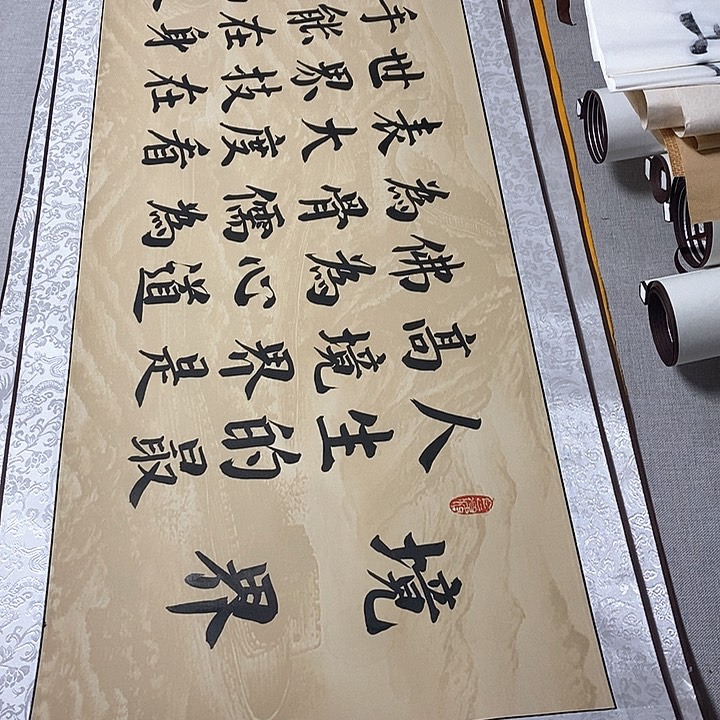 境界
人生的最
高境界是
佛為心道
為骨儒為
表大度看
世界技在
手能在身